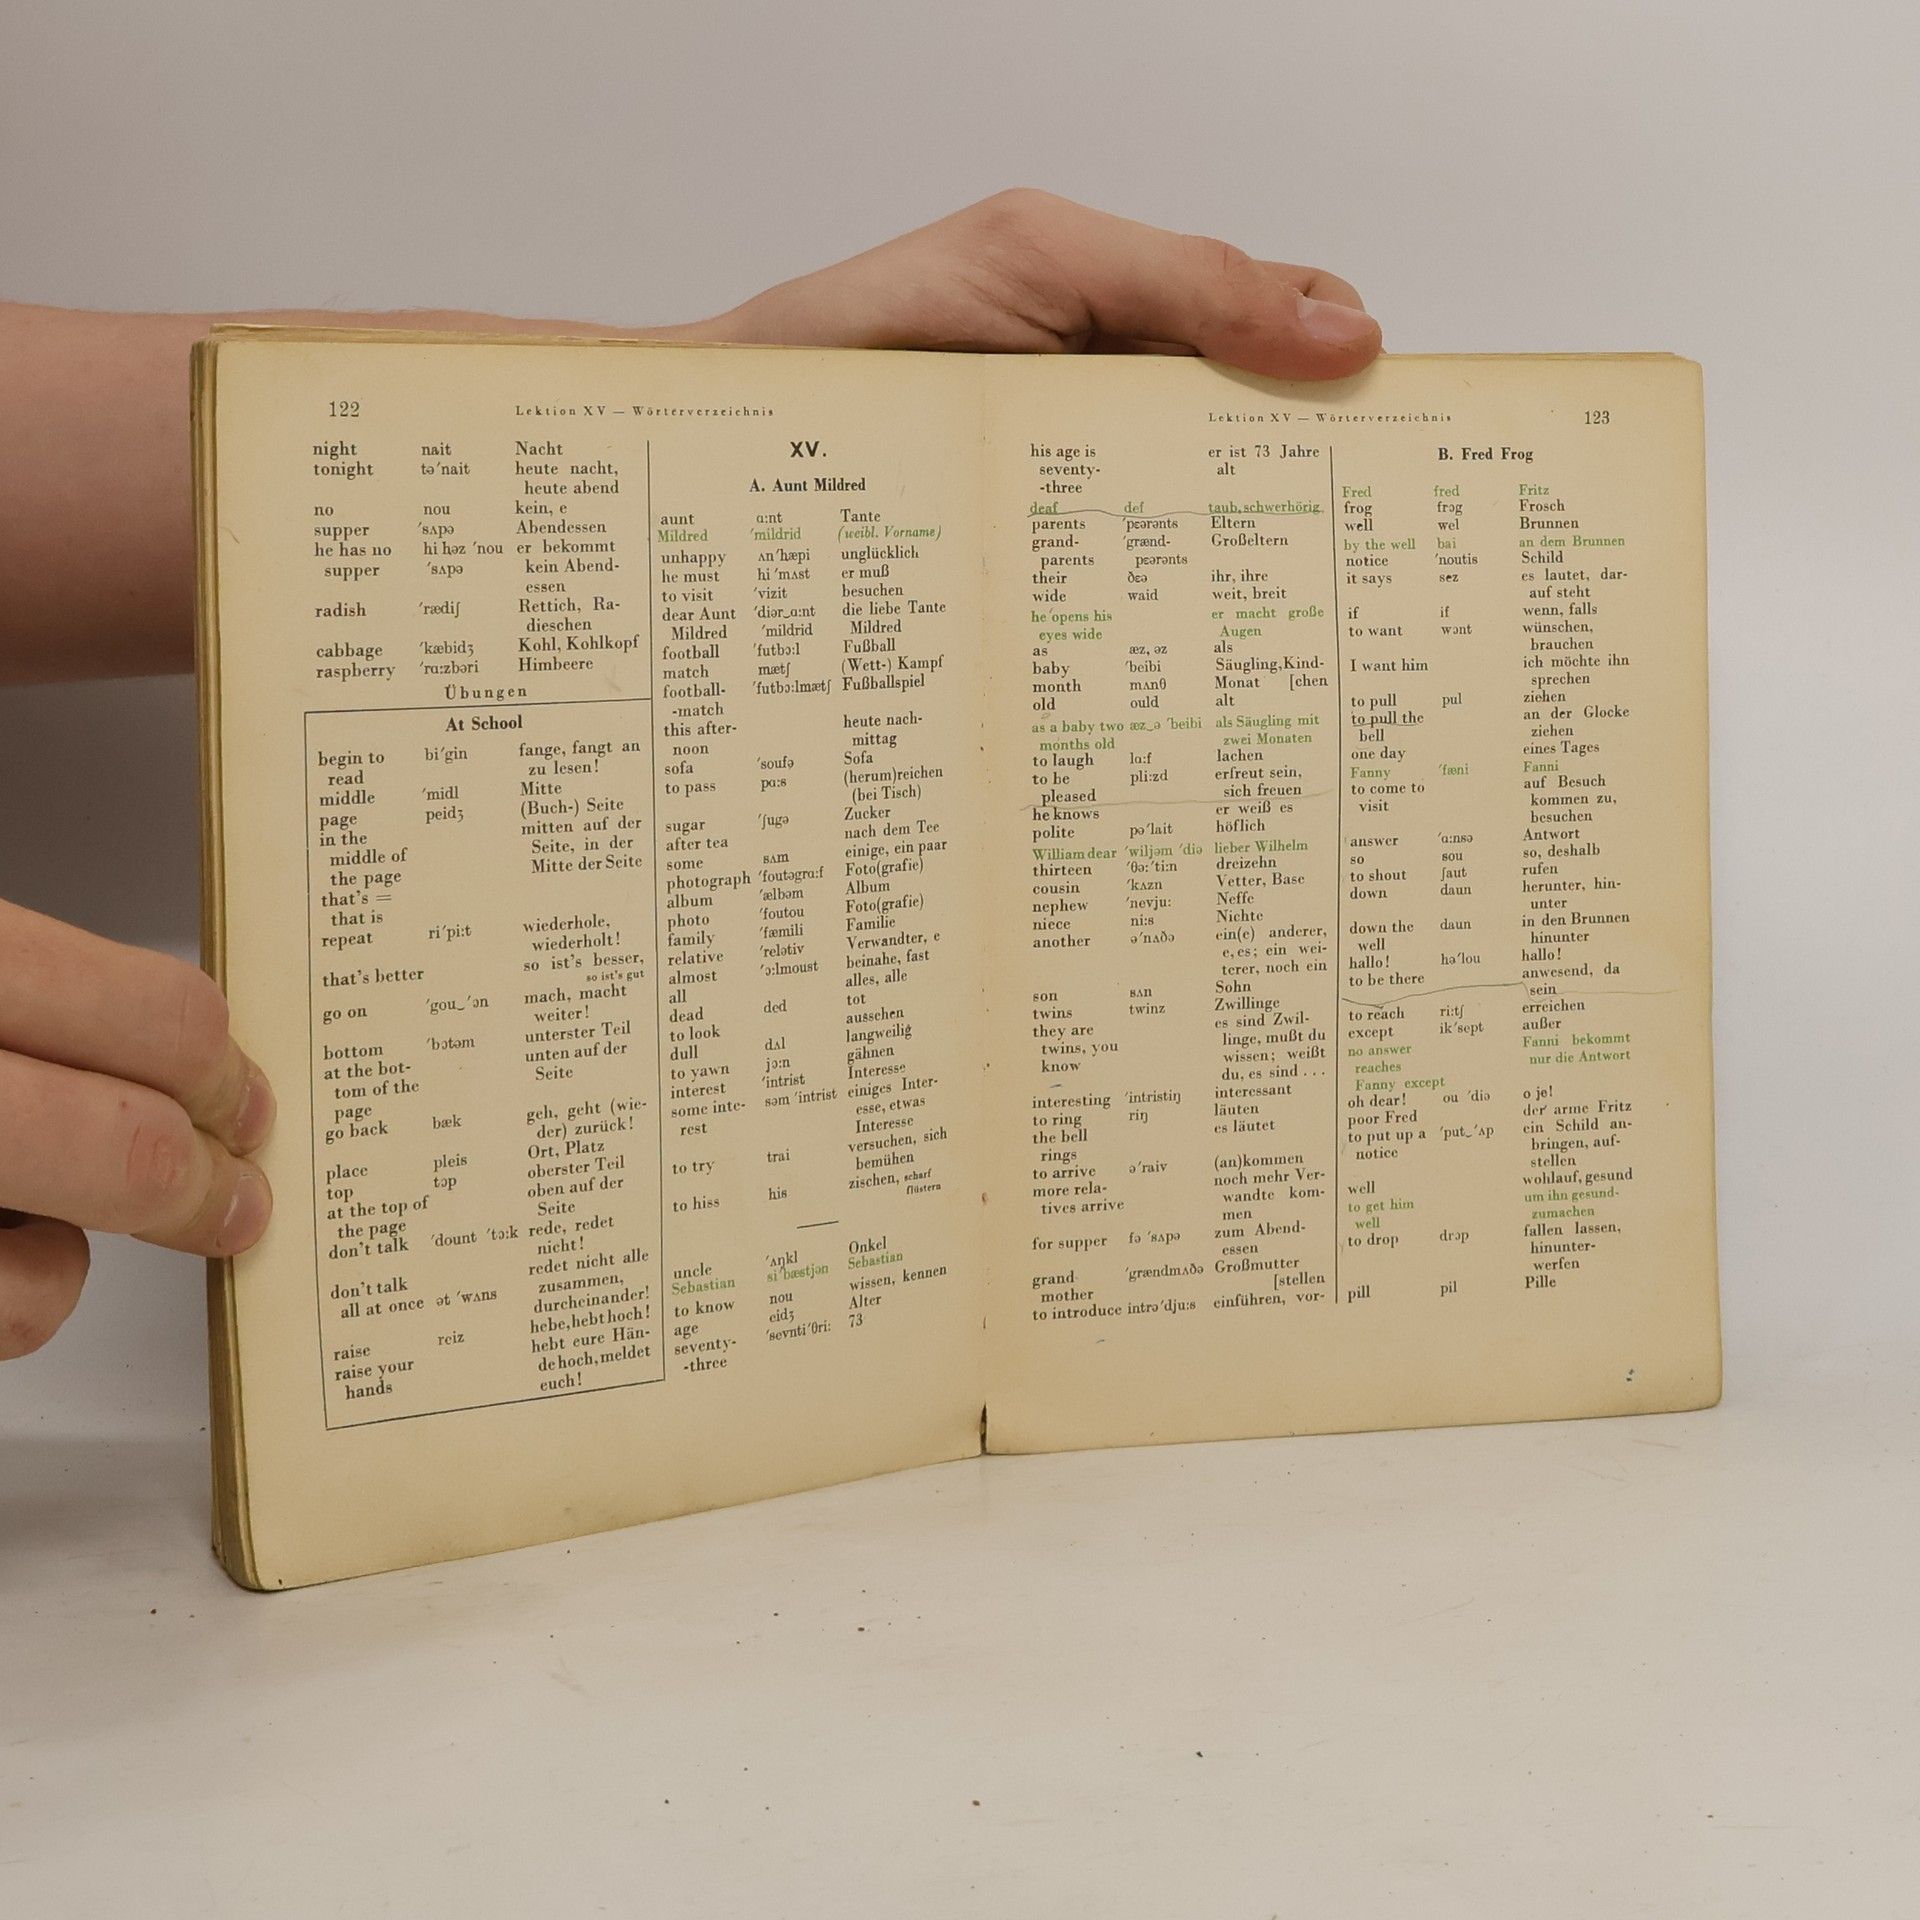 122 Lektion XV — Wörterverzeichnis
night nait Nacht
tonight tə'nait heute nacht,
heute abend
no nou kein, e
supper 'sʌpə Abendessen
he has no hi həz 'nou er bekommt
supper 'sʌpə kein Abend-
essen
radish 'rædiʃ Rettich, Ra-
dieschen
cabbage 'kæbidʒ Kohl, Kohlkopf
raspberry 'rɑ:zbəri Himbeere
Übungen
At School
begin to bi'gin fange, fangt an
read zu lesen!
middle 'midl Mitte
page peidʒ (Buch-) Seite
in the mitten auf der
middle of Seite, in der
the page Mitte der Seite
that's =
that is
repeat ri'pi:t wiederhole,
wiederholt!
that's better so ist's besser,
so ist's gut
go on 'gou‿'ɔn mach, macht
weiter!
bottom 'bɔtəm unterster Teil
at the bot- unten auf der
tom of the Seite
page
go back bæk geh, geht (wie-
der) zurück!
place pleis Ort, Platz
top tɔp oberster Teil
at the top of oben auf der
the page Seite
don't talk 'dount 'tɔ:k rede, redet
nicht!
don't talk redet nicht alle
all at once ət 'wʌns zusammen,
durcheinander!
raise reiz hebe, hebt hoch!
raise your hebt eure Hän-
hands de hoch, meldet
euch!
XV.
A. Aunt Mildred
aunt ɑ:nt Tante
Mildred 'mildrid (weibl. Vorname)
unhappy ʌn'hæpi unglücklich
he must hi 'mʌst er muß
to visit 'vizit besuchen
dear Aunt 'diər‿ɑ:nt die liebe Tante
Mildred 'mildrid Mildred
football 'futbɔ:l Fußball
match mætʃ (Wett-) Kampf
football- 'futbɔ:lmætʃ Fußballspiel
-match
this after- heute nach-
noon mittag
sofa 'soufə Sofa
to pass pɑ:s (herum)reichen
(bei Tisch)
sugar 'ʃugə Zucker
after tea nach dem Tee
some sʌm einige, ein paar
photograph 'foutəgrɑ:f Foto(grafie)
album 'ælbəm Album
photo 'foutou Foto(grafie)
family 'fæmili Familie
relative 'relətiv Verwandter, e
almost 'ɔ:lmoust beinahe, fast
all alles, alle
dead ded tot
to look aussehen
dull dʌl langweilig
to yawn jɔ:n gähnen
interest 'intrist Interesse
some inte- səm 'intrist einiges Inter-
rest esse, etwas
Interesse
to try trai versuchen, sich
bemühen
to hiss his zischen, scharf
flüstern
uncle 'ʌŋkl Onkel
Sebastian si'bæstjən Sebastian
to know nou wissen, kennen
age eidʒ Alter
seventy- 'sevnti'θri: 73
-three
Lektion XV — Wörterverzeichnis 123
his age is er ist 73 Jahre
seventy- alt
-three
deaf def taub, schwerhörig
parents 'pɛərənts Eltern
grand- 'grænd- Großeltern
parents pɛərənts
their ðɛə ihr, ihre
wide waid weit, breit
he opens his er macht große
eyes wide Augen
as æz, əz als
baby 'beibi Säugling, Kind-
month mʌnθ Monat [chen
old ould alt
as a baby two æz‿ə 'beibi als Säugling mit
months old zwei Monaten
to laugh lɑ:f lachen
to be pli:zd erfreut sein,
pleased sich freuen
he knows er weiß es
polite pə'lait höflich
William dear 'wiljəm 'diə lieber Wilhelm
thirteen 'θə:'ti:n dreizehn
cousin 'kʌzn Vetter, Base
nephew 'nevju: Neffe
niece ni:s Nichte
another ə'nʌðə ein(e) anderer,
e, es; ein wei-
terer, noch ein
son sʌn Sohn
twins twinz Zwillinge
they are es sind Zwil-
twins, you linge, mußt du
know wissen; weißt
du, es sind . . .
interesting 'intristiŋ interessant
to ring riŋ läuten
the bell es läutet
rings
to arrive ə'raiv (an)kommen
more rela- noch mehr Ver-
tives arrive wandte kom-
men
for supper fə 'sʌpə zum Abend-
essen
grand- 'grændmʌðə Großmutter
mother [stellen
to introduce intrə'dju:s einführen, vor-
B. Fred Frog
Fred fred Fritz
frog frɔg Frosch
well wel Brunnen
by the well bai an dem Brunnen
notice 'noutis Schild
it says sez es lautet, dar-
auf steht
if if wenn, falls
to want wɔnt wünschen,
brauchen
I want him ich möchte ihn
sprechen
to pull pul ziehen
to pull the an der Glocke
bell ziehen
one day eines Tages
Fanny 'fæni Fanni
to come to auf Besuch
visit kommen zu,
besuchen
answer 'ɑ:nsə Antwort
so sou so, deshalb
to shout ʃaut rufen
down daun herunter, hin-
unter
down the daun in den Brunnen
well hinunter
hallo! hə'lou hallo!
to be there anwesend, da
sein
to reach ri:tʃ erreichen
except ik'sept außer
no answer Fanni bekommt
reaches nur die Antwort
Fanny except
oh dear! ou 'diə o je!
poor Fred der arme Fritz
to put up a 'put‿'ʌp ein Schild an-
notice bringen, auf-
stellen
well wohlauf, gesund
to get him um ihn gesund-
well zumachen
to drop drɔp fallen lassen,
hinunter-
werfen
pill pil Pille